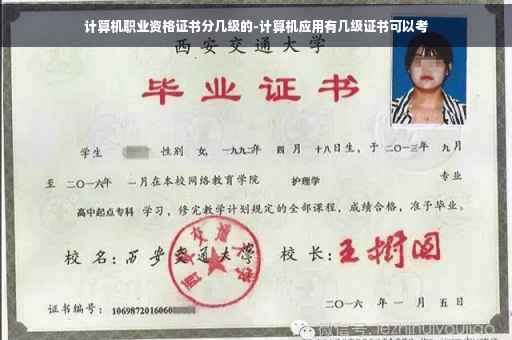 计算机职业资格证书分几级的-计算机应用有几级证书可以考
西安交通大学
毕业证书
学生 性别 女, 一九九二年 四月 十八日生, 于 二〇一三年 九月
至 二〇一六年 一月在本校网络教育学院 护理学 专业
高中起点专科 学习, 修完教学计划规定的全部课程, 成绩合格, 准予毕业。
校 名: 西安交通大学 校 长: 王树国
西安交通大学
证书编号: 1069872016060
二〇一六 年 一 月 五 日
微信号: jezhihuiyoujiao